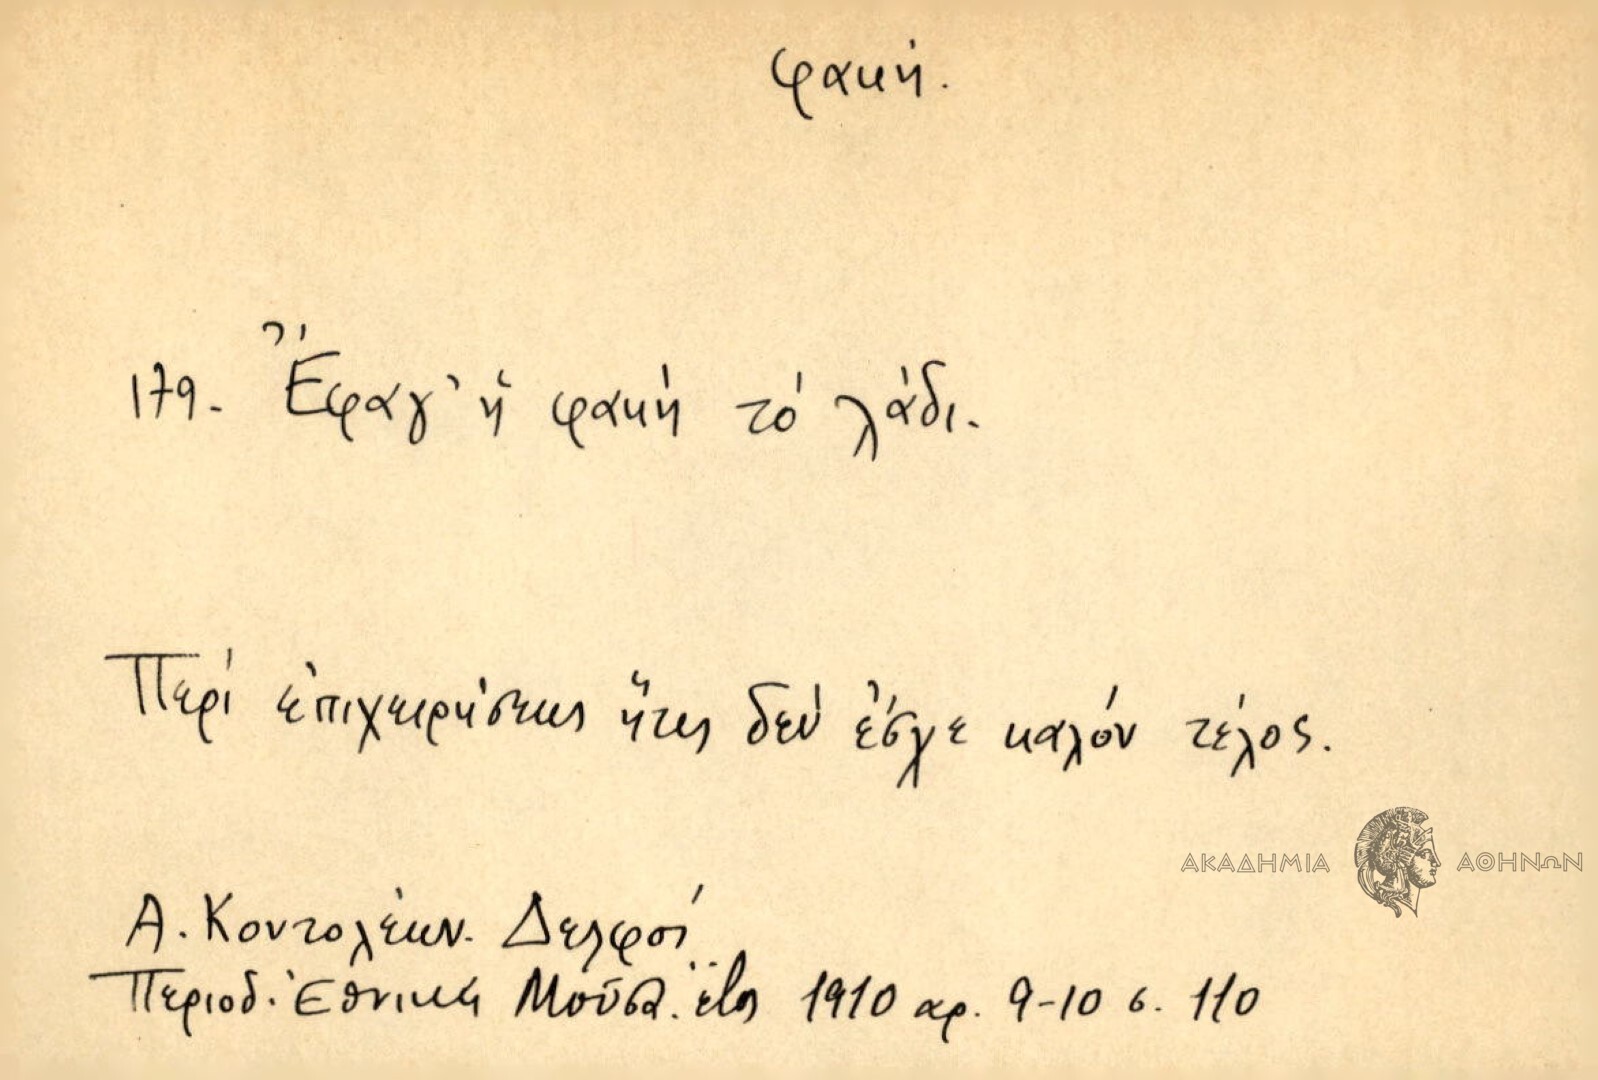 φακή.
179. Ἔφαγ' ἡ φακή τό λάδι.
Περί ἐπιχειρήσεως ἥτις δέν ἔσχε καλόν τέλος.
ΑΚΑΔΗΜΙΑ ΑΘΗΝΩΝ
Α. Κοντολέων. Δελφοί
Περιοδ. Ἐθνική Μοῦσα. ἔτος 1910 αρ. 9-10 σ. 110